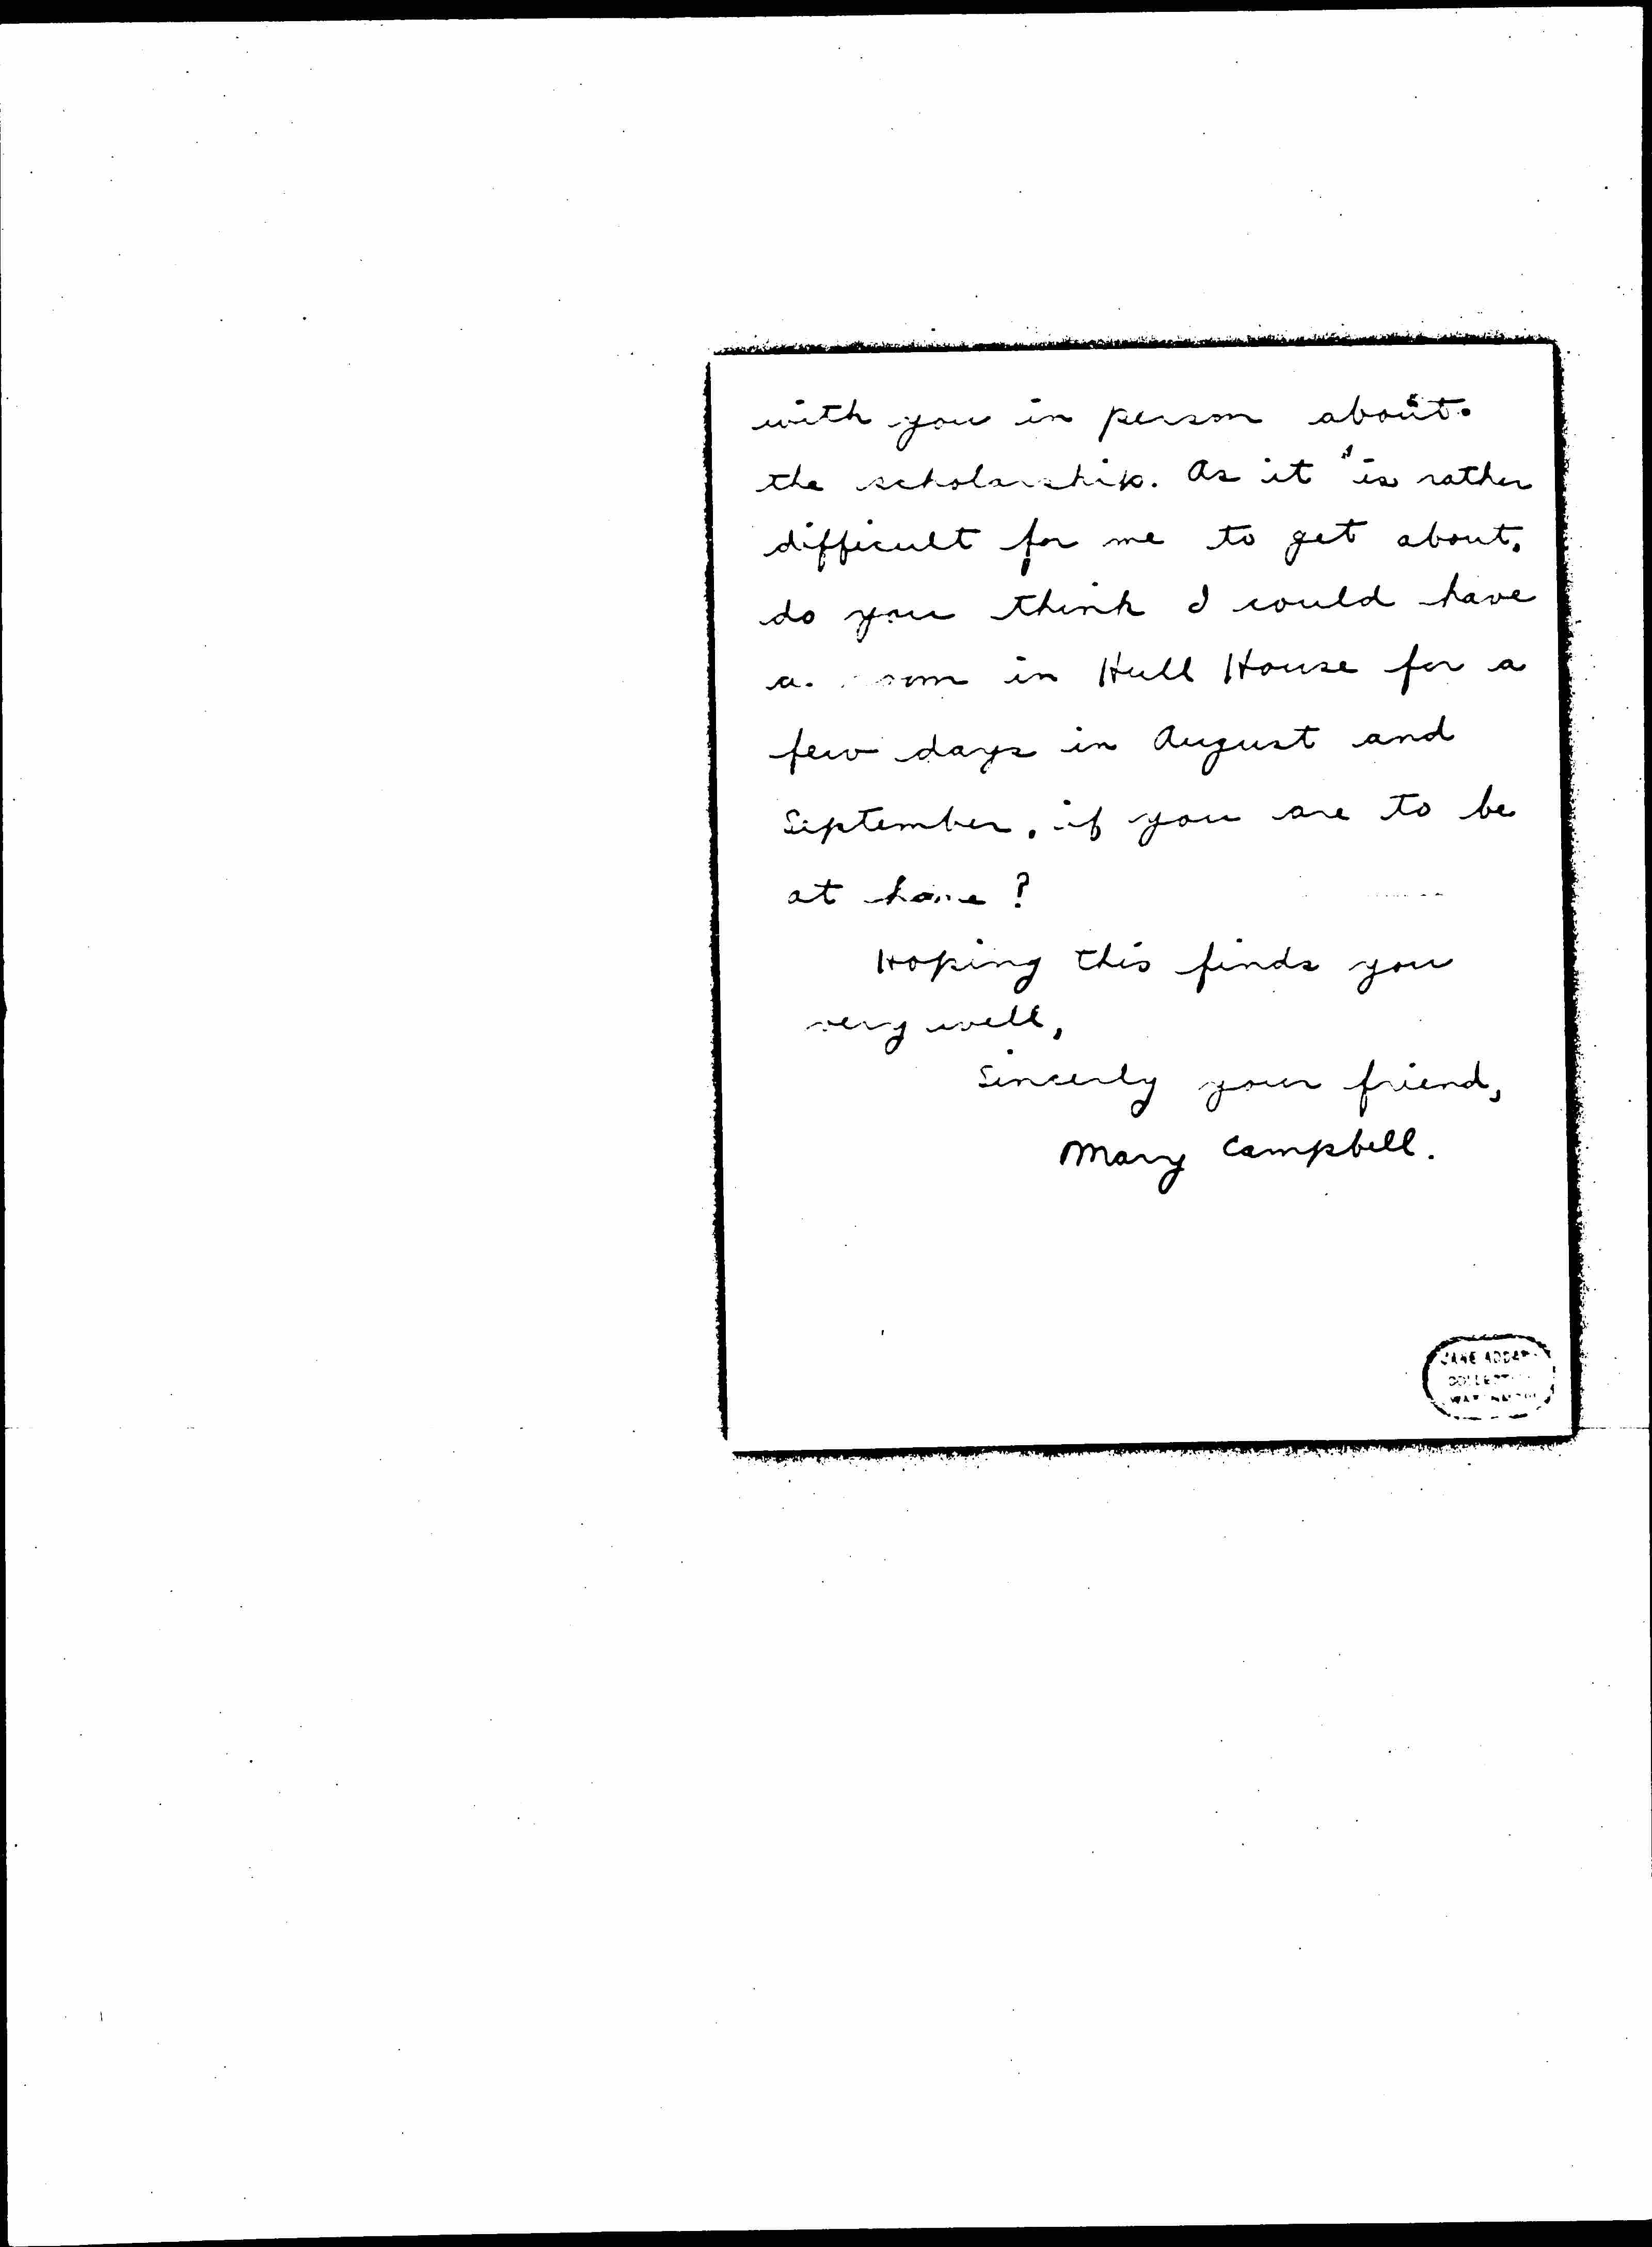 with you in person about
the scholarship. As it is rather
difficult for me to get about,
do you think I could have
a room in Hull House for a
few days in August and
September, if you are to be
at home?
Hoping this finds you
very well,
Sincerly your friend,
Mary Campbell.
JANE ADDAMS
COLLECTION